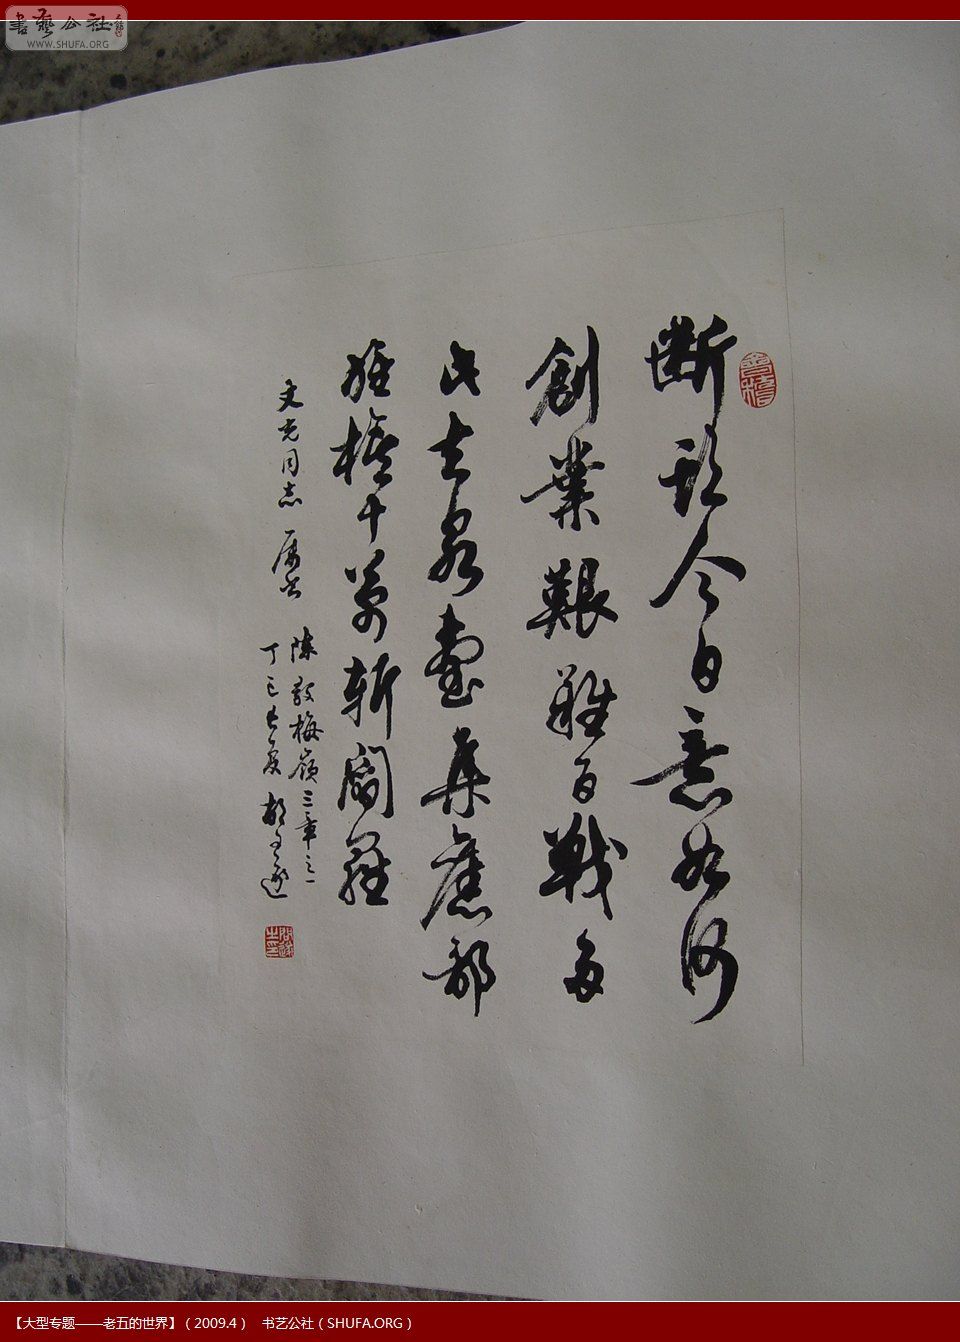 書藝公社
WWW.SHUFA.ORG
會稽
斷頭今日意如何
創業艱難百戰多
此去泉臺集舊部
旌旗十萬斬閻羅
文光同志属书 陳毅梅嶺三章之一
丁巳長夏 胡問遂
問遂之印
【大型专题——老五的世界】（2009.4） 书艺公社（SHUFA.ORG）